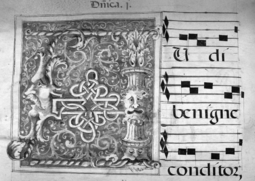 Dnica. j.
U di
benigne
conditor,